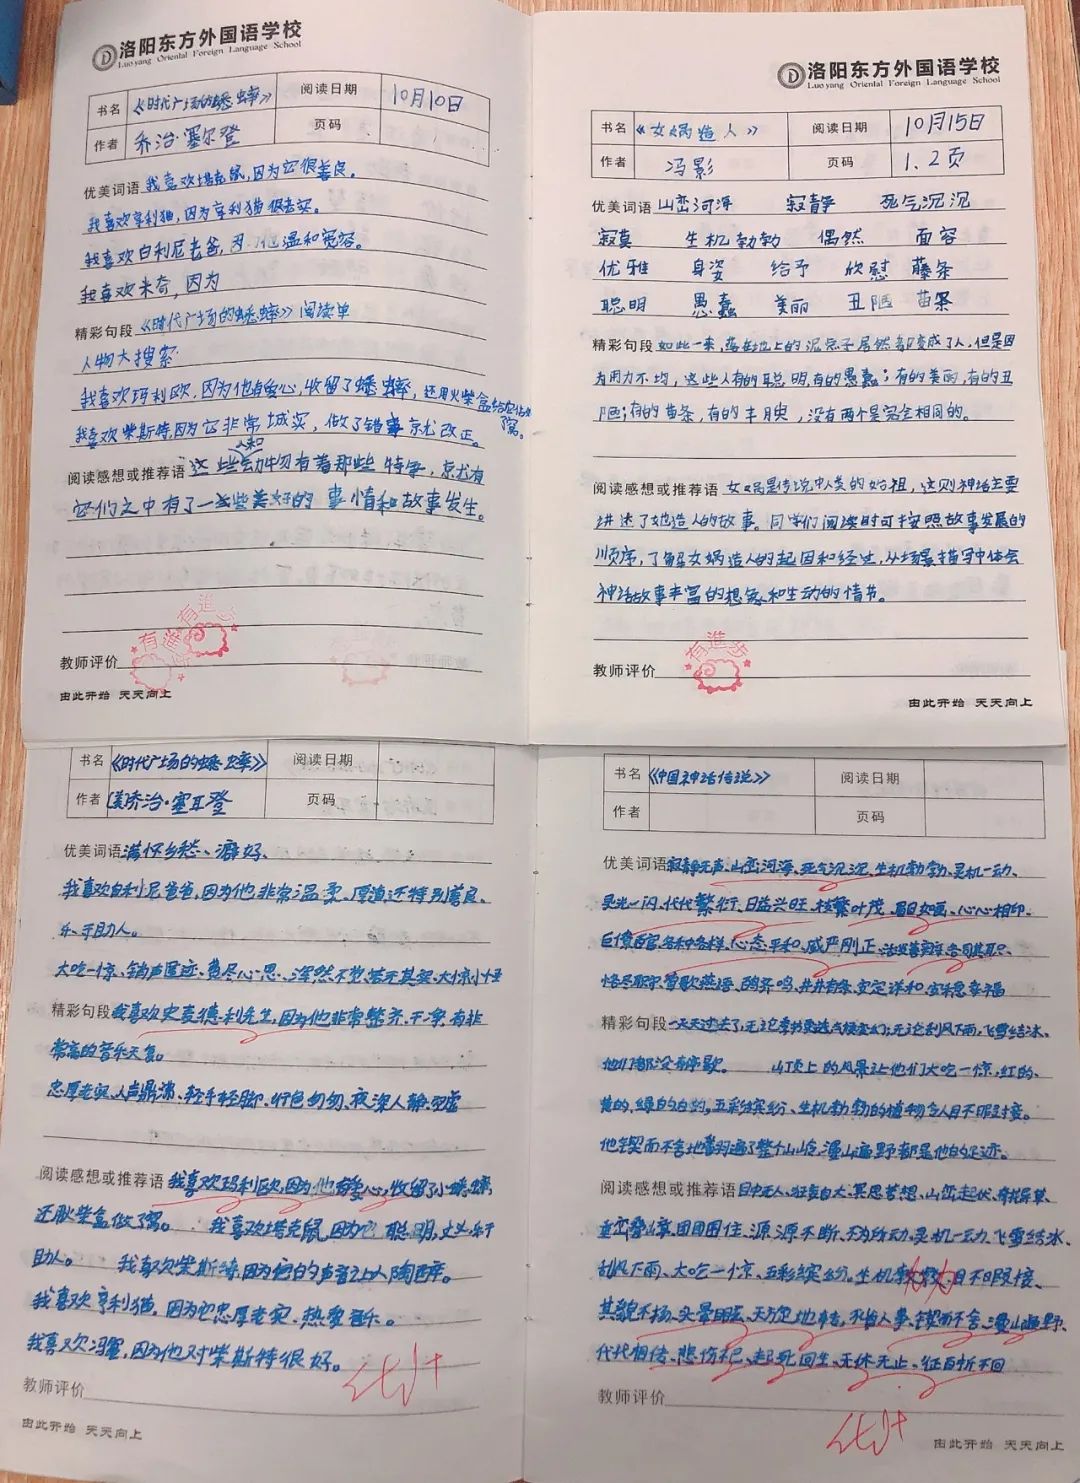 洛阳东方外国语学校
Luoyang Oriental Foreign Language School
书名 《时代广场的蟋蟀》 阅读日期 10月10日
作者 乔治·塞尔登 页码
优美词语 我喜欢塔克鼠,因为它很善良。
我喜欢亨利猫,因为亨利猫很老实。
我喜欢白利尼老爸,因 他温和宽容。
我喜欢朱奇,因为
精彩句段 《时代广场的蟋蟀》阅读单
人物大搜索
我喜欢玛利欧,因为他有爱心,收留了蟋蟀,还用火柴盒给它做
了窝。
我喜欢柴斯特,因为它非常诚实,做了错事就改正。
阅读感想或推荐语 这些动物有着那些特
人和
它们之中有了一些些美好的事情和故事发生。
有進步
有進步
教师评价
由此开始 天天向上
洛阳东方外国语学校
Luoyang Oriental Foreign Language School
书名 《女娲造人》 阅读日期 10月15日
作者 冯影 页码 1.2页
优美词语 山峦河海 寂静 死气沉沉
寂寞 生机勃勃 偶然 面容
优雅 身姿 给予 欣慰 藤条
聪明 愚蠢 美丽 丑陋 苗条
精彩句段 如此一来,落在地上的泥点子居然都变成了人,但是因
为用力不均,这些人有的聪明,有的愚蠢;有的美丽,有的丑
陋;有的苗条,有的丰腴,没有两个是完全相同的。
阅读感想或推荐语 女娲是传说中人类的始祖,这则神话主要
讲述了她造人的故事。同学们阅读时可按照故事发展的
顺序,了解女娲造人的起因和经过,从场景描写中体会
神话故事丰富的想象和生动的情节。
有進步
教师评价
由此开始 天天向上
书名 《时代广场的蟋蟀》 阅读日期
作者 [美]乔治·塞耳登 页码
优美词语 满怀乡愁、癖好、
我喜欢白利尼爸爸,因为他非常温柔、厚道还特别善良、
乐于助人。
大吃一惊、销声匿迹、费尽心思、浑然不觉、若无其事、大惊小怪
精彩句段 我喜欢史麦德利先生,因为他非常整齐、干净,有非
常高的音乐天氛。
忠厚老实、人声鼎沸、轻手轻脚、行色匆匆、夜深人静、空虚
阅读感想或推荐语 我喜欢玛利欧,因为他有爱心,收留了小蟋蟀,
还耿柴盒做了窝。 我喜欢塔克鼠,因为它聪明,
助人。 我喜欢柴斯特,因为它的声音让人陶醉。
我喜欢亨利猫,因为它忠厚老实、热爱音乐。
我喜欢冯赛,因为他对柴斯特很好。
教师评价
由此开始 天天向上
书名 《中国神话传说》 阅读日期
作者 页码
优美词语 寂静无声、山峦河海、死气沉沉、生机勃勃、灵机一动、
灵光一闪、代代繁衍、日益兴旺、枝繁叶茂、眉目如画、心心相印、
各种各样、心态平和、威严刚正、 各司其职、
恪尽职守、莺歌燕语、鸥齐鸣、井井有条、安定详和、安稳幸福
精彩句段 一天天过去了,无论季节更迭气候变幻;无论刮风下雨,飞雪结冰、
他们都没有停歇。 山顶上的风景让他们大吃一惊,红的、
黄的,绿的白的,五彩缤纷、生机勃勃的植物令人目不暇接。
他锲而不舍地翻遍了整个山岭,漫山遍野都是他的足迹。
阅读感想或推荐语 目中无人、狂妄自大、冥思苦想、山峦起伏、奇花异草、
重峦叠嶂、团团围住、源源不断、无为所动、灵机一动、飞雪结冰、
刮风下雨、大吃一惊、五彩缤纷、生机勃勃、目不暇接、
其貌不扬、头晕眼花、天旋地转、不省人事、锲而不舍、漫山遍野、
代代相传、悲伤不已、起死回生、无休无止、征百折不回
教师评价
由此开始 天天向上